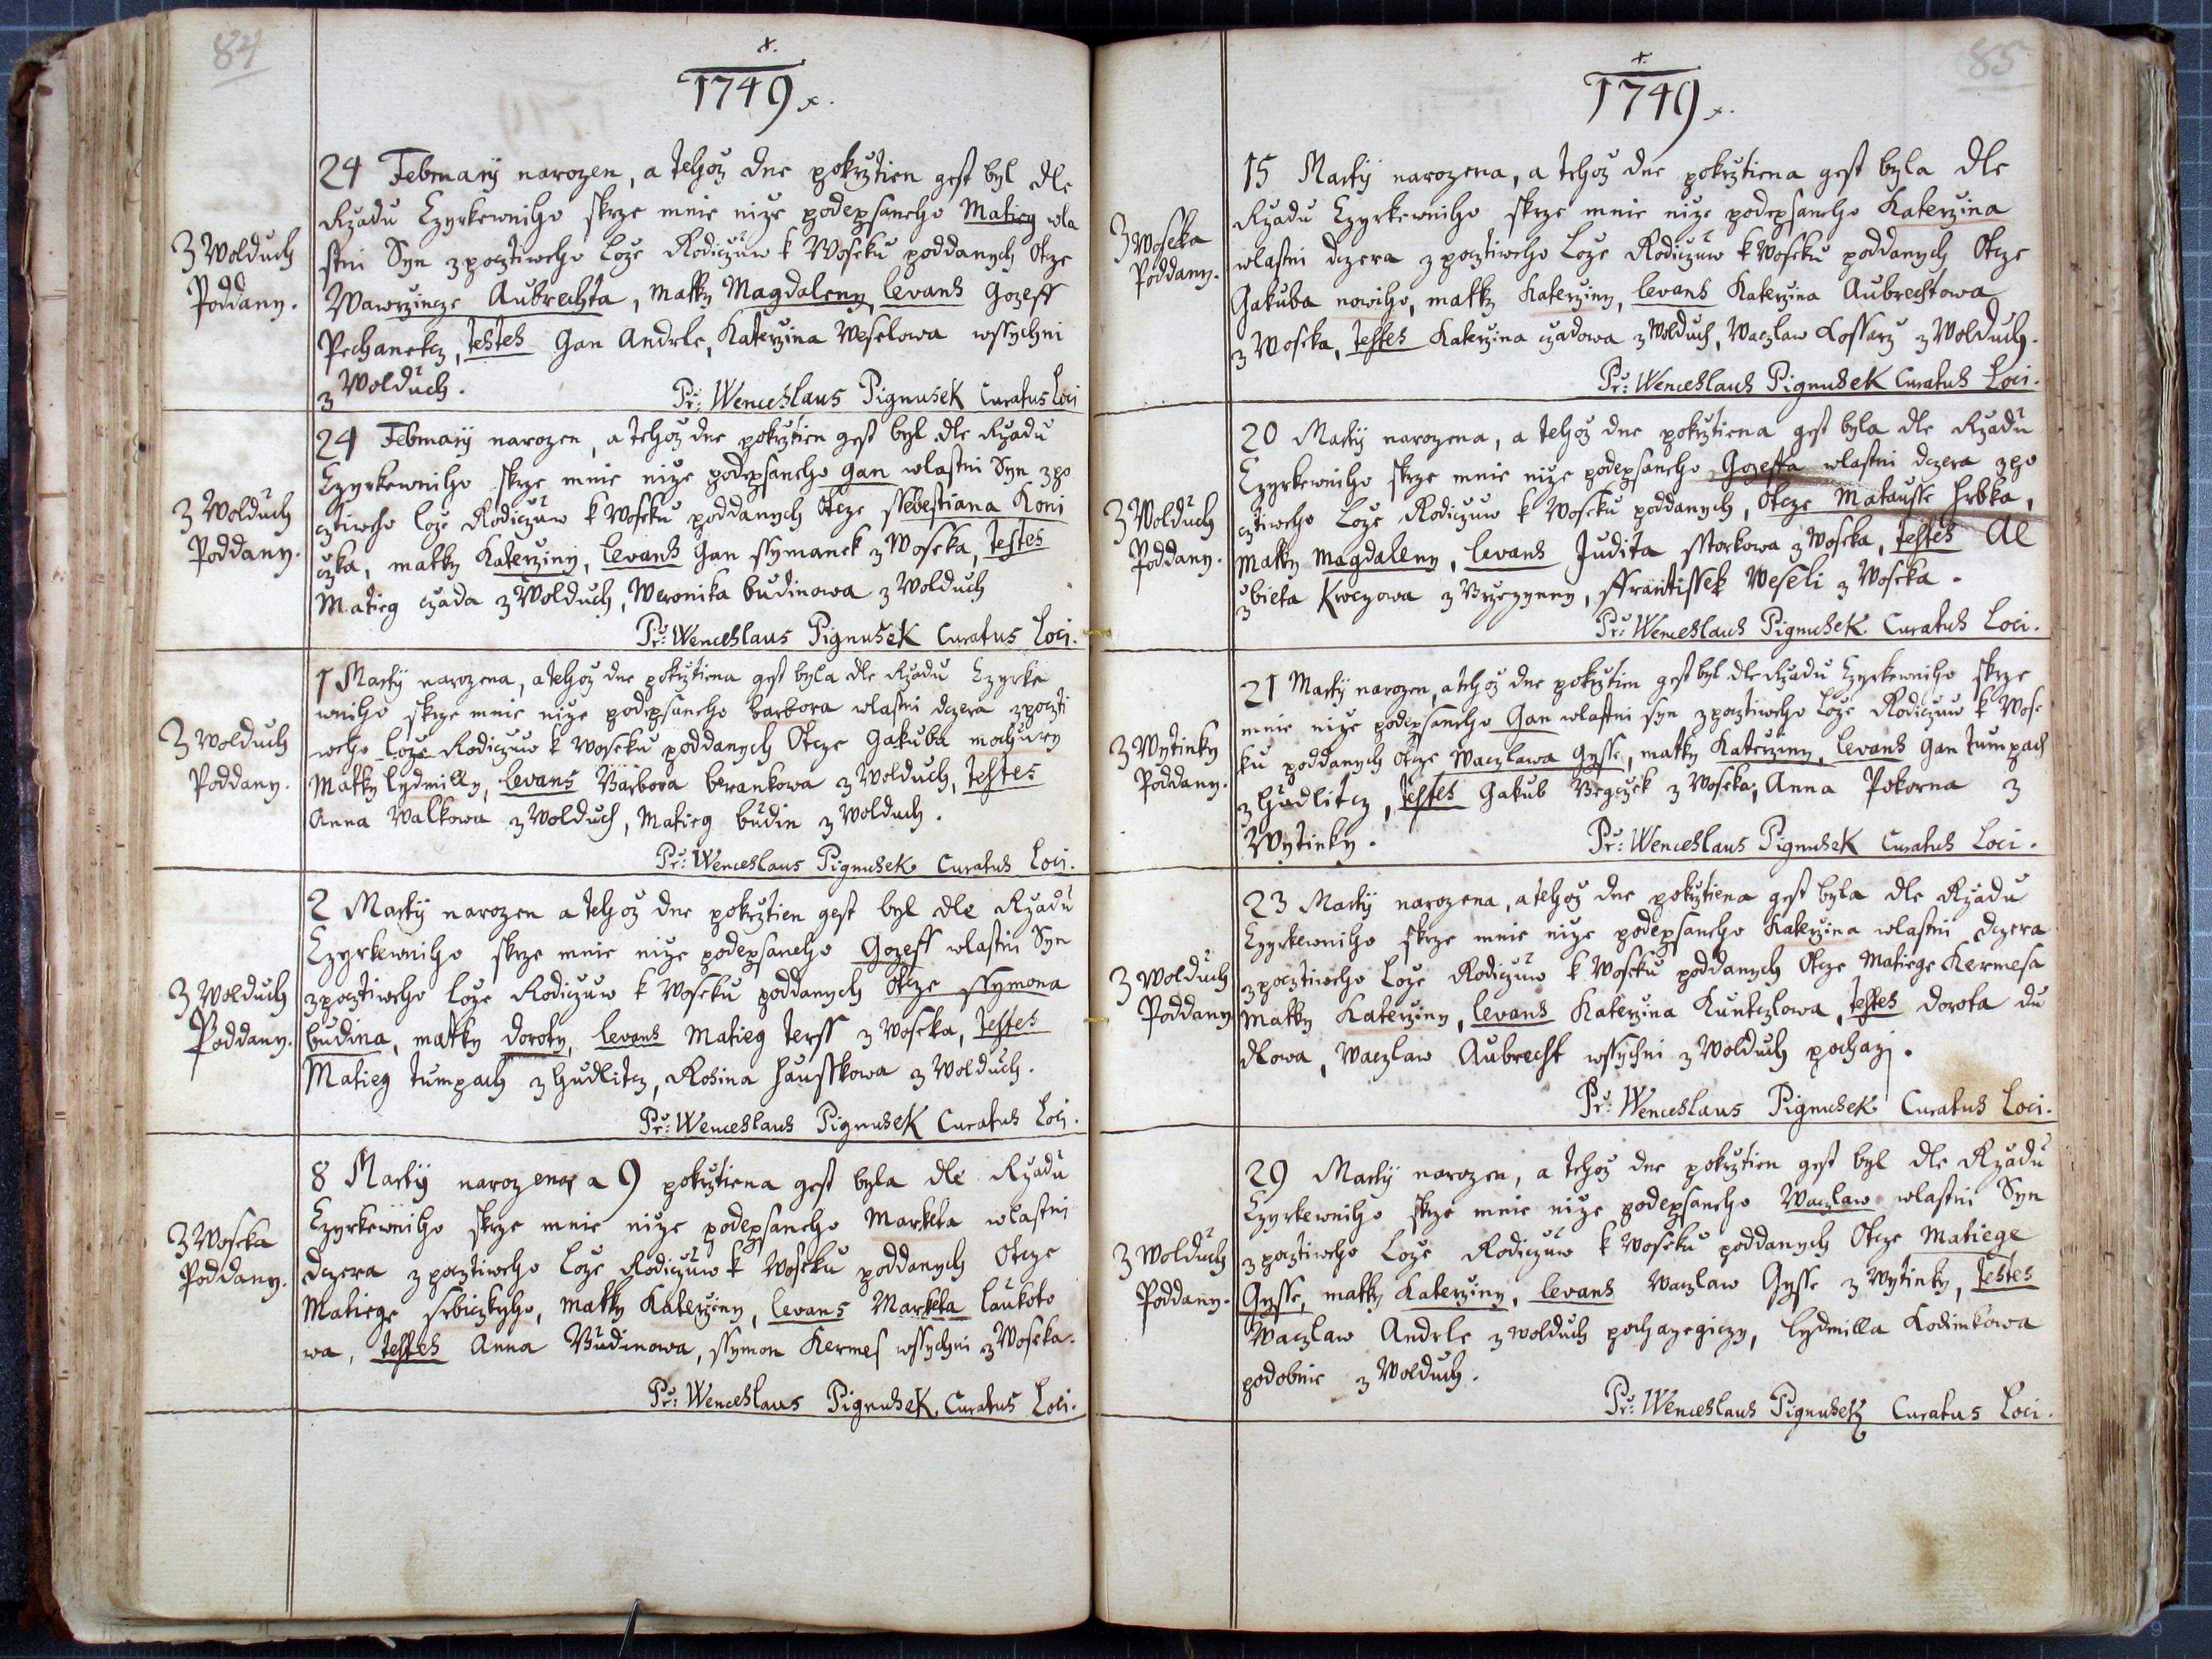 84
1749
Z Wolduch
Poddany.
24 Februarÿ narozen, a tehoz dne pokrztien gest byl dle
Rzadu Czyrkewniho skrze mnie nize podepsaneho Matieg wla
stni Syn zpocztiweho Loze Rodiczuw k Woseku poddanych Otcze
Wawrzincze Aubrechta, matky Magdaleny, levans Gozeff
Pechanetcz, testes Gan Andrle, Katerzina Weselowa wssychni
z Wolduch.
Pr: Wenceslaus Pignusek Curatus Loci
Z Wolduch
Poddany.
24 Februarÿ narozen, a tehoz dne pokrztien gest byl dle Rzadu
Czyrkewniho skrze mnie nize podepsaneho Gan wlastni Syn zpo
cztiweho loze Rodiczuw k Woseku poddanych Otcze ssebestiana Koni
czka, matky Katerziny, levans Gan ssymanek z Woseka, testes
Matieg czada z Wolduch, Weronika budinowa z Wolduch
Pr: Wenceslaus Pignusek Curatus Loci.
Z Wolduch
Poddany.
1 Martÿ narozena, a tehoz dne pokrztiena gest byla dle Rzadu Czyrke
wniho skrze mnie nize podepsaneho barbora wlastni dczera zpoczti
weho loze Rodiczuw k Woseku poddanych Otcze Gakuba mochury
Matky lydmilly, levans Barbora berankowa z Wolduch, testes
Anna Walkowa z Wolduch, Matieg budin z Wolduch.
Pr: Wenceslaus Pignusek Curatus Loci.
Z Wolduch
Poddany.
2 Martÿ narozen a tehoz dne pokrztien gest byl dle Rzadu
Czyrkewniho skrze mnie nize podepsaneho Gozeff wlastni Syn
zpocztiweho loze Rodiczuw k Woseku poddanych otcze ssymona
budina, matky doroty, levans Matieg terss z Woseka, testes
Matieg tumpach z Hudlitcz, Rosina Hausskowa z Wolduch.
Pr: Wenceslaus Pignusek Curatus Loci.
Z Woseka
Poddany.
8 Martÿ narozena, a 9 pokrztiena gest byla dle Rzadu
Czyrkewniho skrze mnie nize podepsaneho Marketa wlastni
dczera zpocztiweho Loze Rodiczuw k Woseku poddanych Otcze
Matiege srbiczkyho, matky Katerziny, levans Marketa laukoto
wa, testes Anna Budinowa, ssymon Kermes wssychni z Woseka.
Pr: Wenceslaus Pignusek, Curatus Loci.
85
1749
Z Woseka
Poddany.
15 Martÿ narozena, a tehoz dne pokrztiena gest byla dle
Rzadu Czyrkewniho skrze mnie nize podepsaneho Katerzina
wlastni dczera zpocztiweho Loze Rodiczuw k Woseku poddanych Otcze
Gakuba nowiho, matky Katerziny, levans Katerzina Aubrechtowa
z Woseka, testes Katerzina czadowa z Wolduch, Waczlaw Kossarz z Wolduch.
Pr: Wenceslaus Pignusek Curatus Loci.
Z Wolduch
Poddany.
20 Martÿ narozena, a tehoz dne pokrztiena gest byla dle Rzadu
Czyrkewniho skrze mnie nize podepsaneho Gozeffa wlastni dczera zpo
cztiweho Loze Rodiczuw k Woseku poddanych, Otcze Matausse Hrbka,
Matky Magdaleny, levans Judita sstorkowa z Woseka, testes Al
zbieta Kroczowa z Brzezyny, ffrantissek Weseli z Woseka.
Pr: Wenceslaus Pignusek Curatus Loci.
Z Wytinky
Poddany.
21 Martÿ narozen, a tehoz dne pokrztien gest byl dle Rzadu Czyrkewniho skrze
mnie nize podepsaneho Gan wlastni syn zpocztiweho Loze Rodiczuw k Wose
ku poddanych Otcze Waczlawa Gysse, matky Katerziny, levans Gan tumpach
z Hudlitcz, testes Gakub Begczek z Woseka, Anna Pokorna z
Wytinky.
Pr: Wenceslaus Pignusek Curatus Loci.
Z Wolduch
Poddany
23 Martÿ narozena, a tehoz dne pokrztiena gest byla dle Rzadu
Czyrkewniho skrze mnie nize podepsaneho Katerzina wlastni dczera
zpocztiweho Loze Rodiczuw k Woseku poddanych Otcze Matiege Kermesa
Matky Katerziny, levans Katerzina Kuntczlowa, testes dorota du
dlowa, Waczlaw Aubrecht wssychni z Wolduch pochazj.
Pr: Wenceslaus Pignusek Curatus Loci.
Z Wolduch
Poddany.
29 Martÿ narozen, a tehoz dne pokrztien gest byl dle Rzadu
Czyrkewniho skrze mnie nize podepsaneho Waczlaw wlastni Syn
zpocztiweho Loze Rodiczuw k Woseku poddanych Otcze Matiege
Gysse, matky Katerziny, levans Waczlaw Gysse z Wytinky, testes
Waczlaw Andrle z wolduch pochazegiczy, lydmilla Kodimkowa
podobnie z Wolduch.
Pr: Wenceslaus Pignusek Curatus Loci.